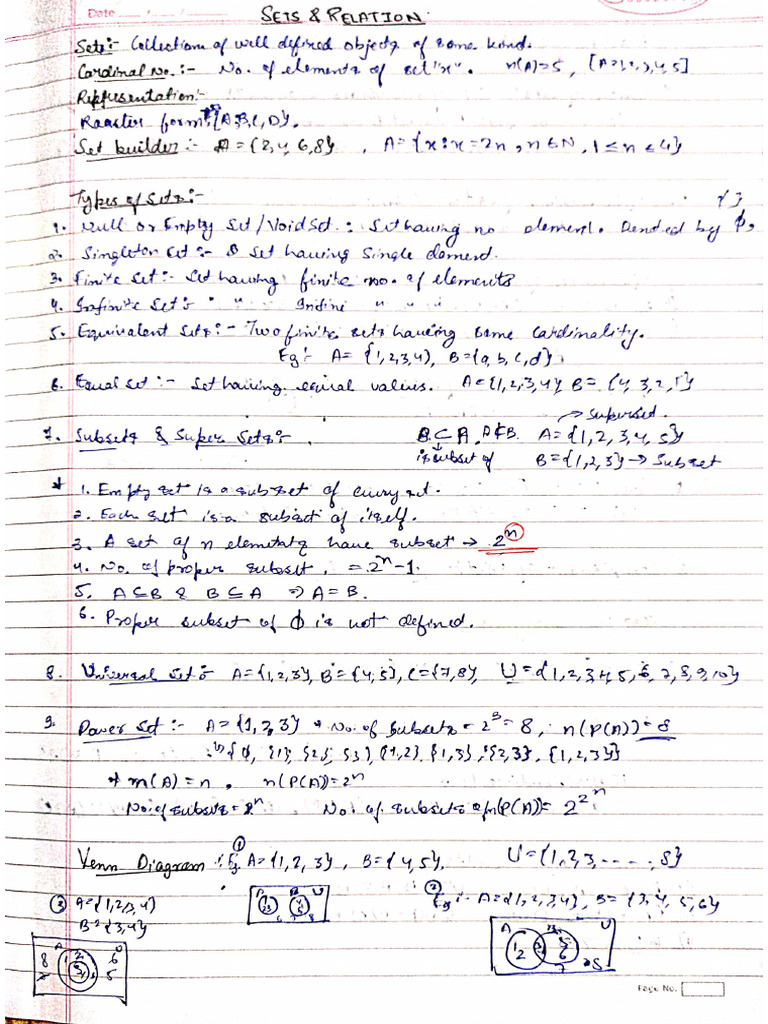 Date
SETS & RELATION
Sets:- Collection of well defined objects of some kind.
Cardinal No.:- No. of elements of set "x". n(A)=5, [A=1,2,3,4,5]
Representation:-
Roaster form: {A,B,C,D}.
Set builder:- A = {2,4,6,8}, A = {x:x=2n, n∈N, 1≤n≤4}
Types of Sets:-
{ }
1. Null or Empty Set/Void Set: Set having no element. Denoted by φ,
2. Singleton Set:- Set having Single element.
3. Finite Set:- Set having finite no. of elements
4. Infinite Set:- " " Infinite " " "
5. Equivalent Sets:- Two finite sets having same cardinality.
Eg:- A= {1,2,3,4}, B={a,b,c,d}
6. Equal set:- Set having equal values. A={1,2,3,4} B= {4,3,2,1}
→ superset.
7. Subsets & Super Sets:- B⊂A, A⊄B. A={1,2,3,4,5}
is subset of B={1,2,3} → Subset
* 1. Empty set is a subset of every set.
2. Each set is a subset of itself.
3. A set of n elements have subset → 2ⁿ
4. No. of proper subset, = 2ⁿ-1.
5. A⊆B & B⊆A ⇒ A=B.
6. Proper subset of φ is not defined.
8. Universal set:- A={1,2,3}, B={4,5}, C={7,8}, U={1,2,3,4,5,6,7,8,9,10}
9. Power Set:- A={1,2,3} * No. of subsets = 2³=8, n(P(A))=8
{φ, {1}, {2}, {3}, {1,2}, {1,3}, {2,3}, {1,2,3}}
* n(A)=n, n(P(A))=2ⁿ
No. of subsets=2ⁿ No. of subsets of n(P(A))= 2^2ⁿ
Venn Diagram: Eg ① A={1,2,3}, B={4,5}, U={1,2,3,....,8}
③ A={1,2,3,4} ② Eg:- A={1,2,3,4}, B={3,4,5,6}
B={3,4}
A B U
A B U
1 2 3 5 6 7 8
A U
8 1 2 3 6 5
Page No.